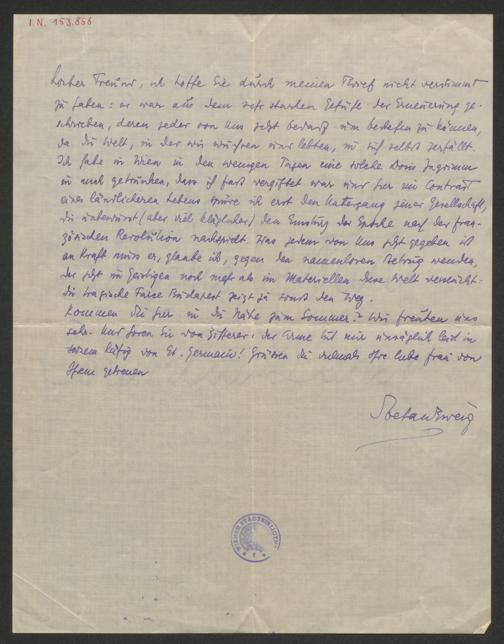 I.N. 153.858
Lieber Freund, ich hoffe Sie durch meinen Brief nicht verstimmt
zu haben: er war aus dem sehr starken Gefühl der Erneuerung ge-
schrieben, deren jeder von uns jetzt bedarf um bestehen zu können,
da die Welt, in der wir wurzeln und lebten, in sich selbst zerfällt.
Ich habe in Wien in den wenigen Tagen eine solche Dosis Ingrimm
in mich getrunken, dass ich fast vergiftet war und hier im Contrast
eines ländlicheren Lebens spüre ich erst den Untergang jener Gesellschaft,
die unbewusst (aber viel kläglicher) den Einsturz der Epoche nach der fran-
zösischen Revolution nachspielt. Was jedem von uns jetzt gegeben ist
an Kraft muss er, glaube ich, gegen den namenlosen Betrug wenden,
der jetzt im Geistigen noch mehr als im Materiellen diese Welt vernichtet:
die tragische Farce Budapest zeigt ja uns den Weg.
Kommen Sie hier in die Nähe zum Sommer? Wir freuten uns
sehr. Und hören Sie von : der Arme tut mir unsäglich leid in
seinem Käfig von St. Germain! Grüssen Sie vielmals Ihre liebe Frau von
Ihrem getreuen
Stefan Zweig
WIENER STADTBIBLIOTHEK